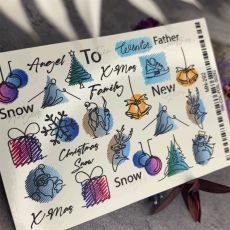 Angel To Winter Father
X-Mas
Snow Family New
Christmas
Snow
Snow
X-Mas